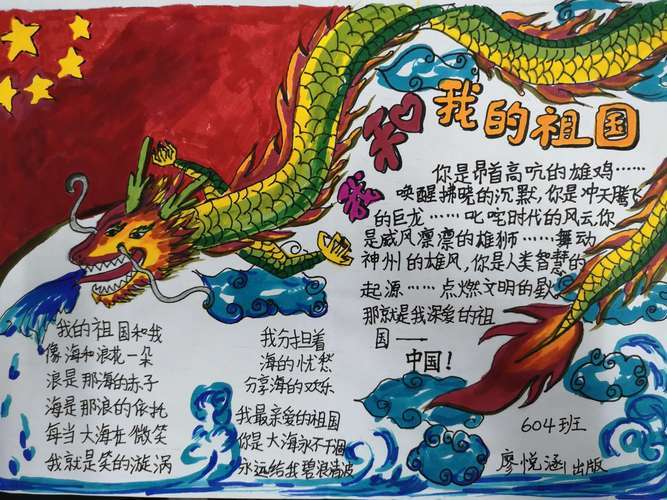 我和我的祖国
你是昂首高吭的雄鸡……
唤醒拂晓的沉默,你是冲天腾飞
的巨龙……叱咤时代的风云,你
是威风凛凛的雄狮……舞动
神州的雄风,你是人类智慧的
起源……点燃文明的星火
那就是我深爱的祖
国——
中国!
我的祖国和我
像海和浪花一朵
浪是那海的赤子
海是那浪的依托
每当大海在微笑
我就是笑的漩涡
我分担着
海的忧愁
分享海的欢乐
我最亲爱的祖国
你是大海永不干涸
永远给我碧浪清波
604班
廖悦涵出版